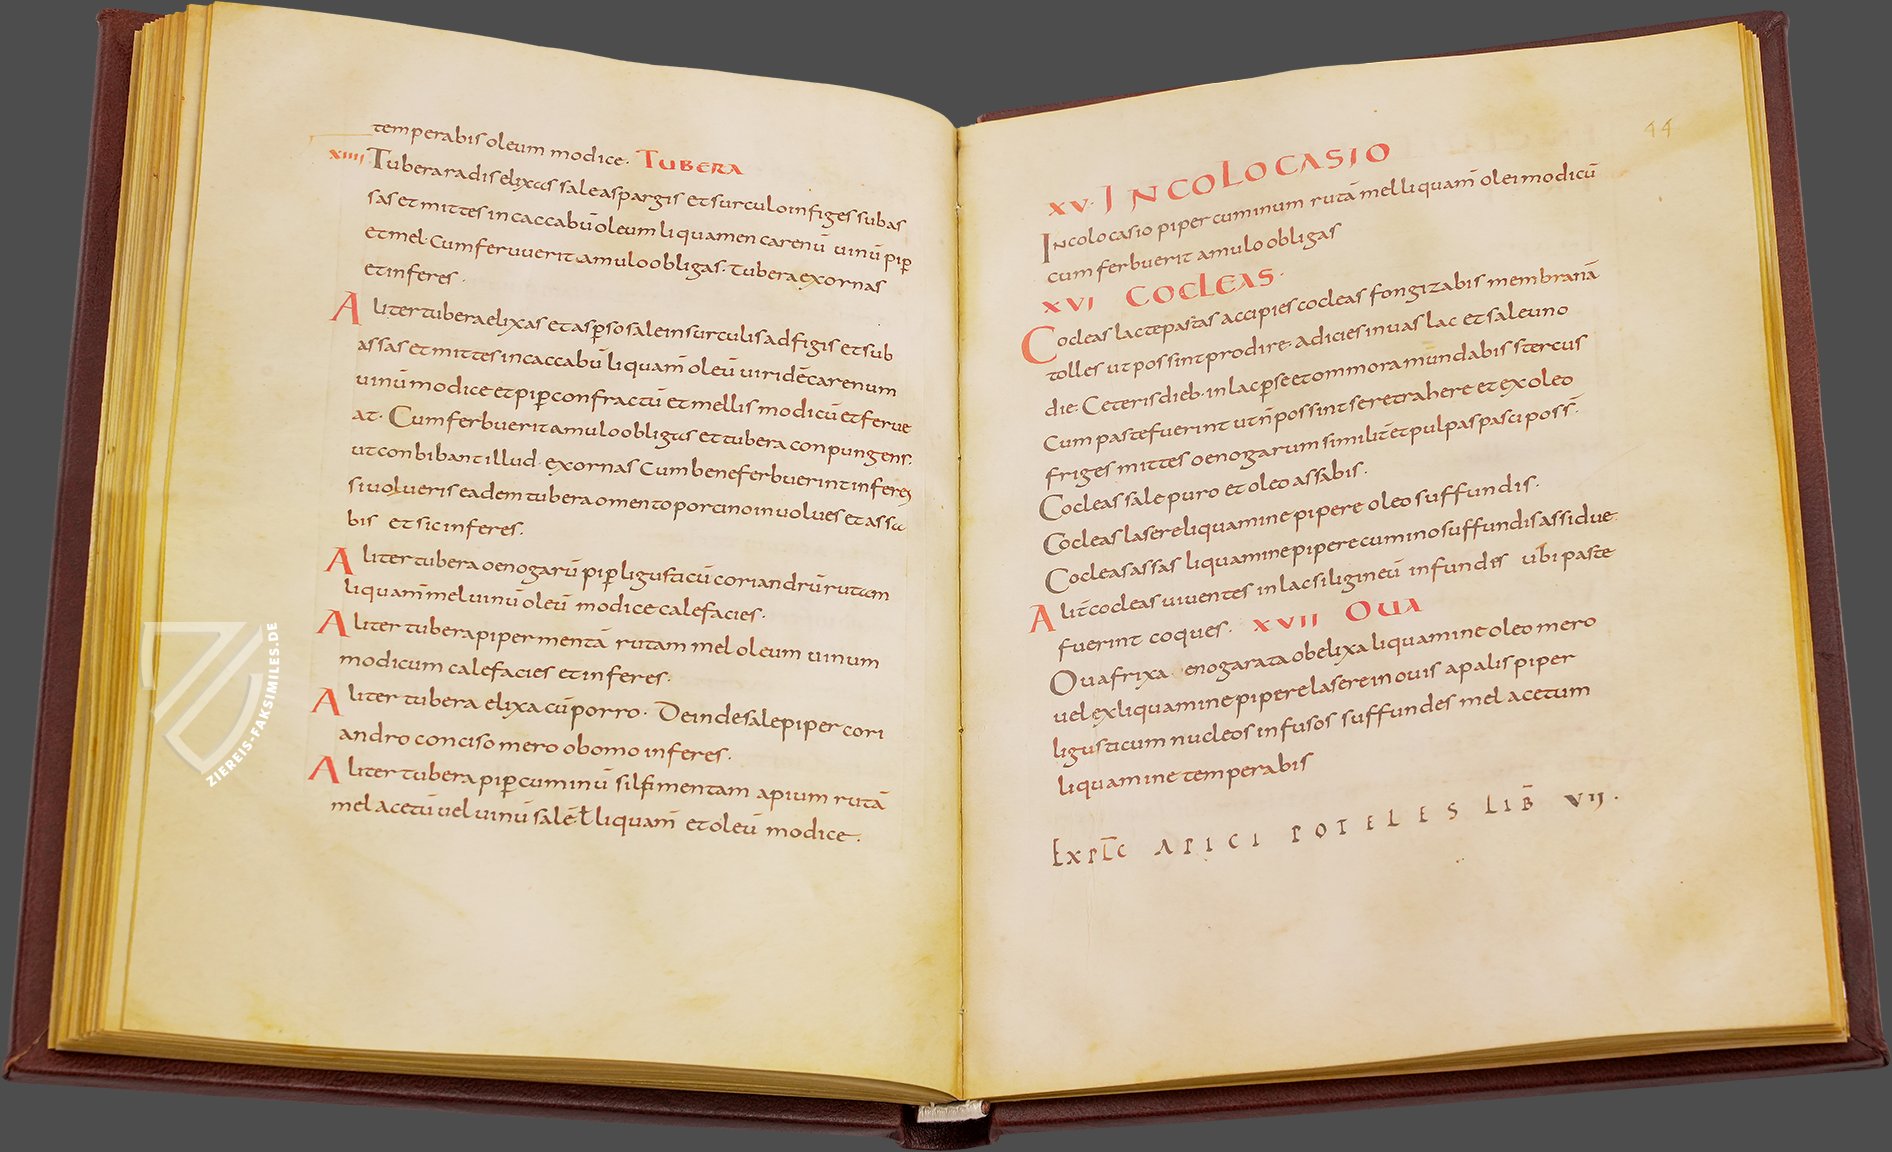 temperabis oleum modice. TUBERA
XIIII Tubera radis elixas sale aspargis et surculo infiges subas
sas et mittes in caccabū oleum liquamen carenū uinū pip̄
et mel. Cum feruuerit amulo obligas. tubera exornas
et inferes.
Aliter tubera elixas et asp̄so sale in surculis adfigis et sub
assas et mittes in caccabū liquam̄ oleū uiridē carenum
uinū modice et pip̄ confractū et mellis modicū et ferue
at. Cum ferbuerit amulo obligas et tubera conpungens.
ut conbibant illud. exornas Cum bene ferbuerint inferes
si uolueris eadem tubera omento porcino inuolues et assa
bis et sic inferes.
Aliter tubera oenogarū pip̄ ligusticū coriandrū rutam
liquam̄ mel uinū oleū modice calefacies.
Aliter tubera piper mentā rutam mel oleum uinum
modicum calefacies et inferes.
Aliter tubera elixa cū porro. Deinde sale piper cori
andro conciso mero obomo inferes.
Aliter tubera pip̄ cuminū silfi mentam apium rutā
mel acetū uel uinū salē ł liquam̄ et oleū modice.
44
XV. IN COLOCASIO
In colocasio piper cuminum rutā mel liquam̄ olei modicū
cum ferbuerit amulo obligas
XVI COCLEAS.
Cocleas lacte pastas accipies cocleas fongizabis membranā
tolles ut possint prodire. adicies in uas lac et sale uno
die. Ceteris dieb. in lac p̄ se et ommora mundabis stercus
Cum paste fuerint ut n̄ possint se retrahere et ex oleo
friges mittes oenogarum similit̄ et pulpas pasci poss̄.
Cocleas sale puro et oleo assabis.
Cocleas lasere liquamine pipere oleo suffundis.
Cocleas assas liquamine pipere cumino suffundis assidue.
Alit̄ cocleas uiuentes in lac siligineū infundis ubi paste
fuerint coques. XVII OUA
Oua frixa enogarata obelixa liquamine oleo mero
uel ex liquamine pipere lasere in ouis apalis piper
ligusticum nucleos infusos suffundes mel acetum
liquamine temperabis
EXPLC APICI POTELES LIB̄ VII.
ZIEREIS-FAKSIMILES.DE